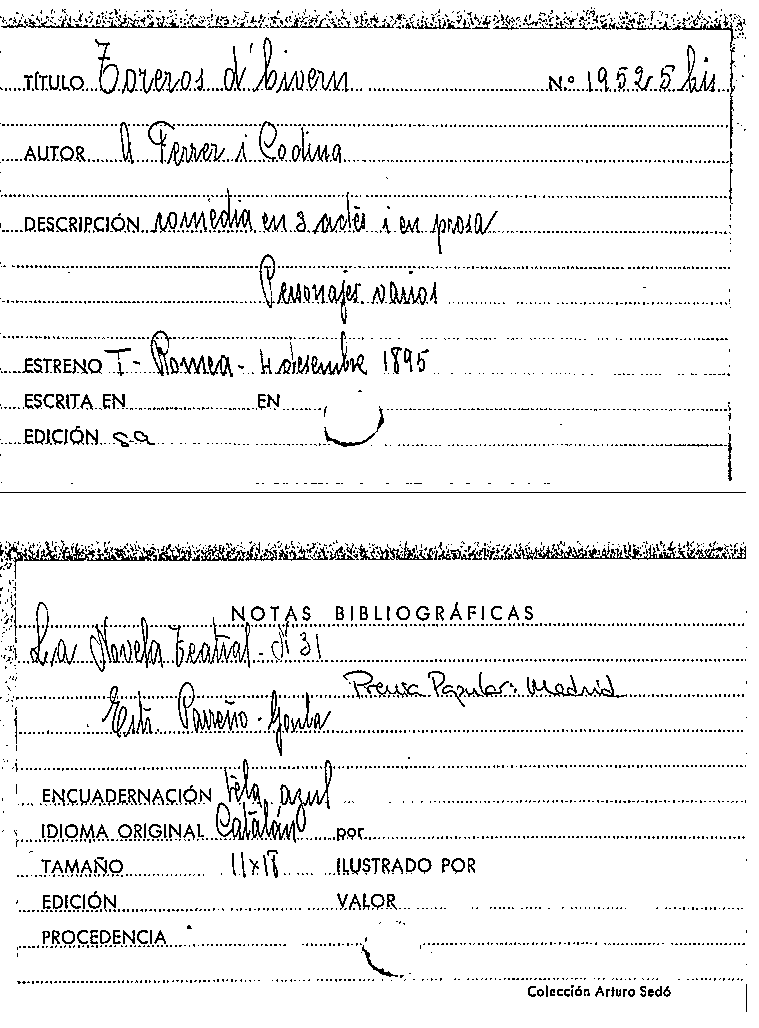 TÍTULO Toreros d'hivern Nº 19525 bis
AUTOR A Ferrer i Codina
DESCRIPCIÓN comèdia en 3 actes i en prosa
Personajes varios
ESTRENO T- Romea - 4 desembre 1895
ESCRITA EN EN
EDICIÓN sa
NOTAS BIBLIOGRÁFICAS
La Novela Teatral - N 31
Prensa Popular: Madrid
Parreño -
ENCUADERNACIÓN tela azul
IDIOMA ORIGINAL Catalán por
TAMAÑO 11x18 ILUSTRADO POR
EDICIÓN VALOR
PROCEDENCIA
Colección Arturo Sedó